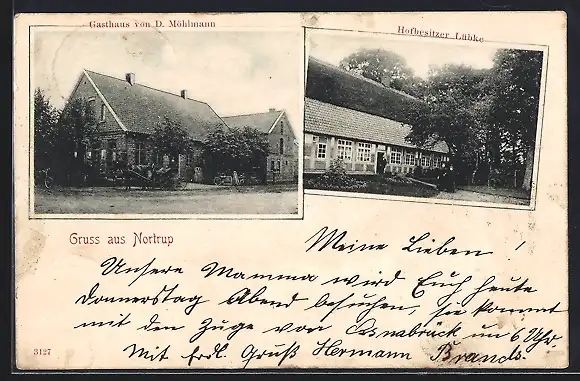 Gasthaus von D. Möhlmann
Hofbesitzer Lübke
Gruss aus Nortrup
Meine Lieben !
Unsere Mamma wird Euch heute
Donnerstag Abend besuchen, sie kommt
mit den Zuge von Osnabrück um 6 Uhr
Mit frdl. Gruß Hermann Brands.
3127